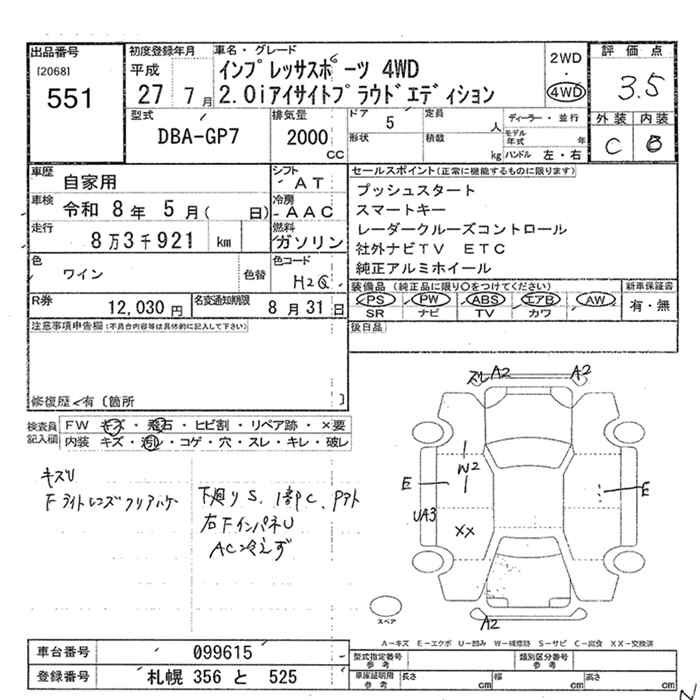 出品番号
[2068]
551
初度登録年月
平成
27 7月
車名・グレード
インプレッサスポーツ 4WD
2.0iアイサイトプラウドエディション
2WD
・
4WD
評価点
3.5
外装 内装
C
型式
DBA-GP7
排気量
2000
cc
ドア 5
形状
定員 人
積載 kg
ディーラー・並行
モデル年式 年
ハンドル 左・右
車歴
自家用
シフト
AT
車検
令和 8年 5月( 日)
冷房
AAC
走行
8万3千921 km
燃料
ガソリン
色
ワイン
色替
色コード
H2Q
R券
12,030円
名変通知期限
8月31日
セールスポイント(正常に機能するものに限ります)
プッシュスタート
スマートキー
レーダークルーズコントロール
社外ナビTV ETC
純正アルミホイール
装備品(純正品に限り○をつけてください)
PS PW ABS エアB AW
SR ナビ TV カワ
新車保証書
有・無
後日品
注意事項申告欄(不具合内容等は具体的に記入して下さい)
修復歴 有〔箇所 〕
検査員記入欄
FW キズ・飛石・ヒビ割・リペア跡・×要
内装 キズ・汚レ・コゲ・穴・スレ・キレ・破レ
キズU
Fライトレンズクリアハゲ
下廻りS、1部PC、Pアト
右FインパネU
AC冷えず
ズレ A2 A2
W2
E
E
UA3
XX
A2
スペア
A−キズ E−エクボ U−凹み W−補修跡 S−サビ C−腐食 XX−交換済
車台番号
099615
登録番号
札幌 356 と 525
型式指定番号
参考
類別区分番号
参考
車庫証明用
参考
長さ cm
幅 cm
高さ cm